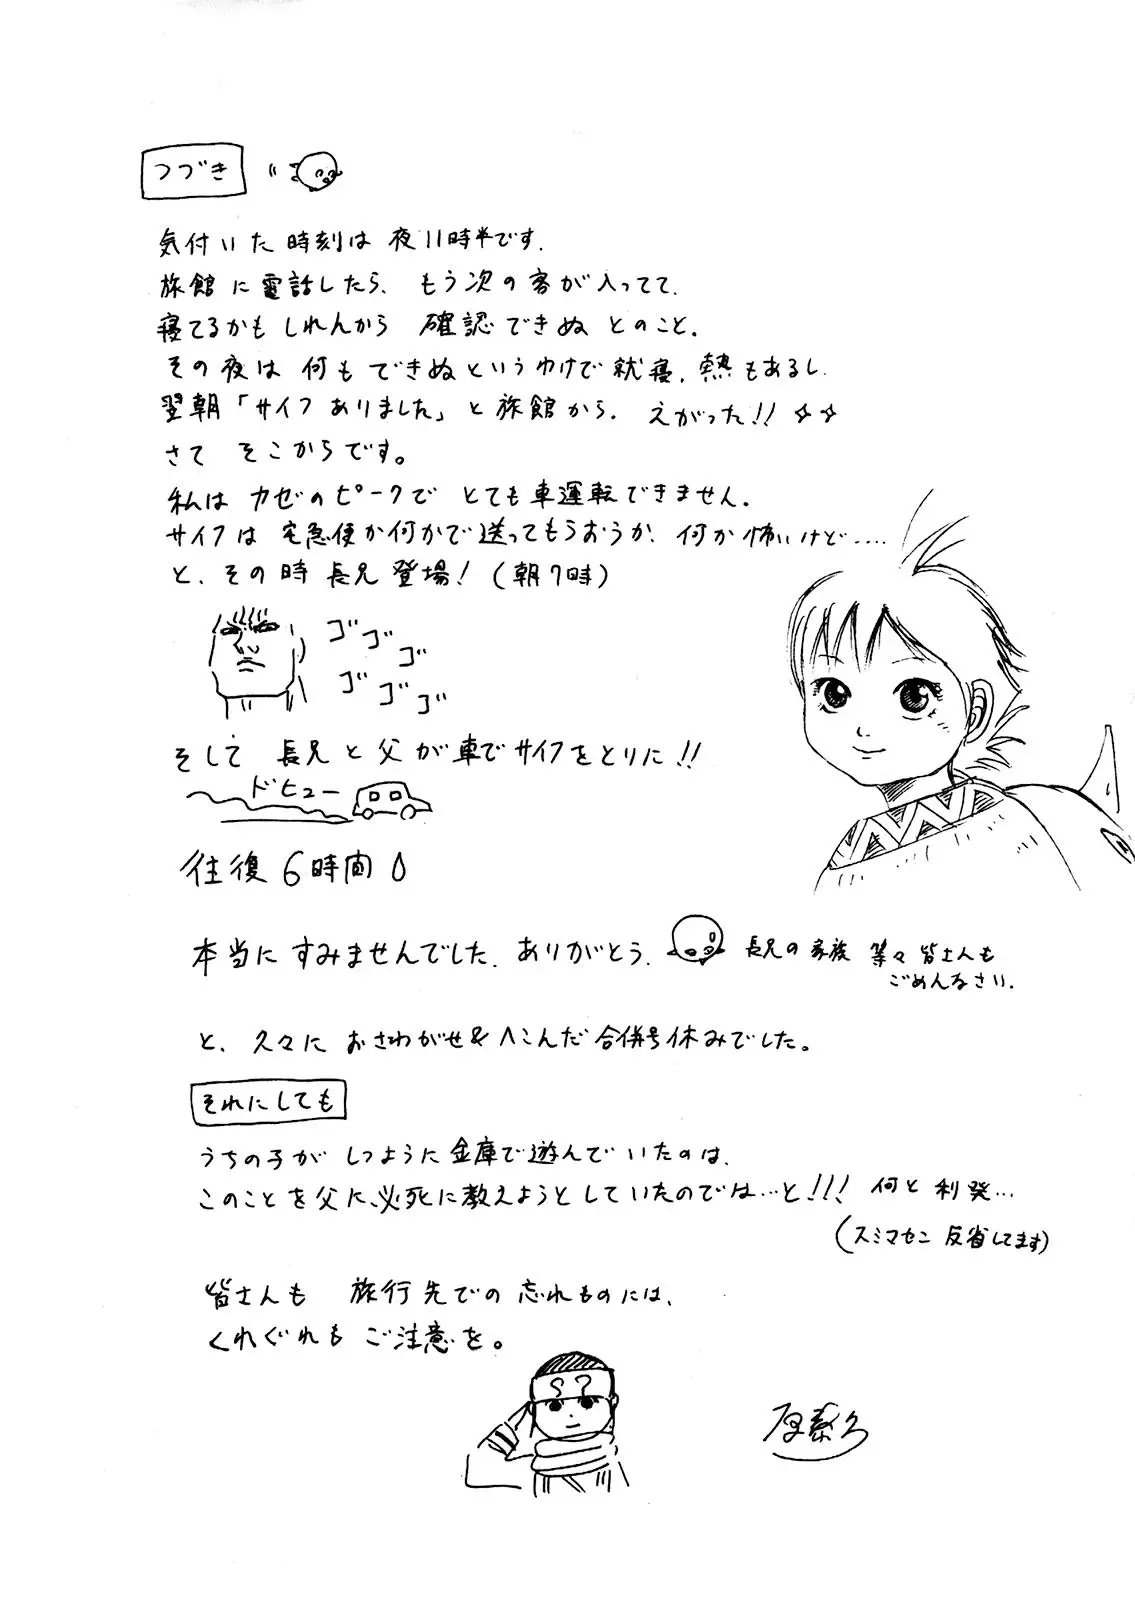 つづき
気付いた時刻は 夜11時半です.
旅館に電話したら、もう次の客が入ってて、
寝てるかもしれんから 確認できぬ とのこと.
その夜は 何もできぬというわけで就寝、熱もあるし.
翌朝「サイフありました」と旅館から. えがった!! ☆☆
さて そこからです。
私は カゼのピークで とても車運転できません.
サイフは 宅急便か何かで送ってもらおうか、何か怖いけど‥‥
と、その時 長兄登場!(朝7時)
ゴゴゴ
ゴゴゴ
そして 長兄と父が車でサイフをとりに!!
ドヒュー
往復6時間
本当にすみませんでした. ありがとう.
長兄の家族 等々 皆さんも
ごめんなさい.
と、久々に おさわがせ&へこんだ 合併号休みでした。
それにしても
うちの子が しつように金庫で遊んでいたのは、
このことを父に、必死に教えようとしていたのでは…と!!! 何と利発…
(スミマセン 反省してます)
皆さんも 旅行先での忘れものには、
くれぐれも ご注意を。
原泰久